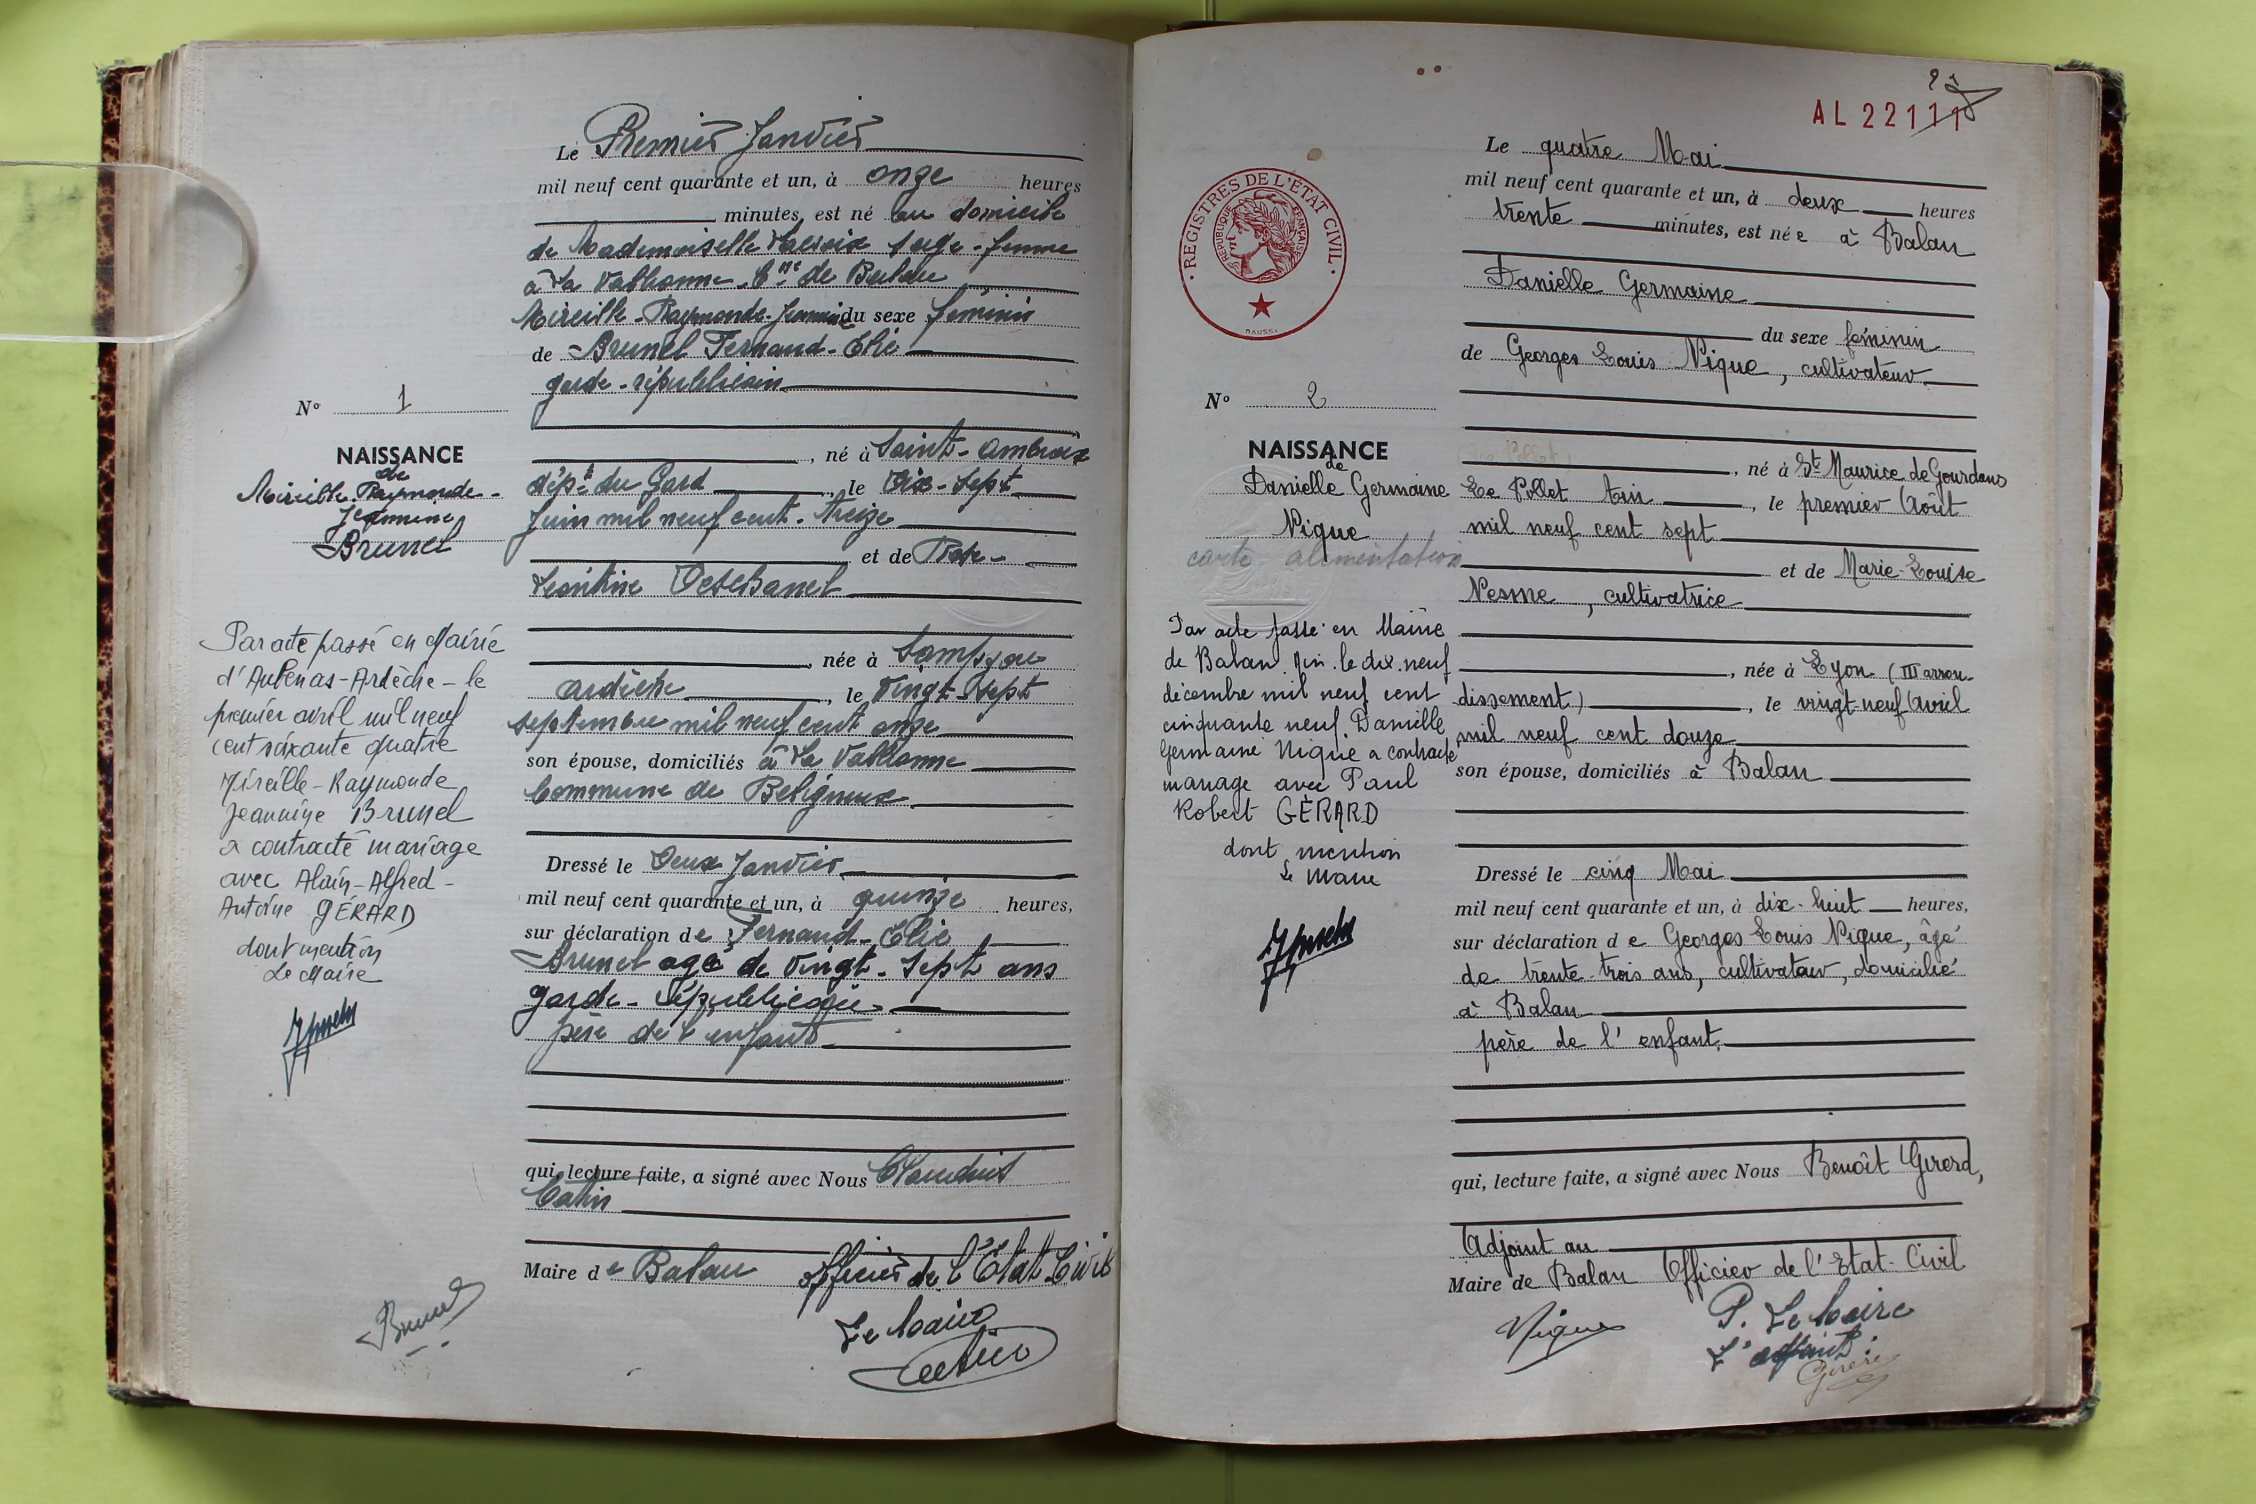 Le Premier Janvier
mil neuf cent quarante et un, à onze heures
minutes, est né au domicile
de Mademoiselle sage-femme
à La Valbonne - Cne de Balan
Mireille - Raymonde - Jeannine du sexe féminin
de Brunel Fernand - Elie
garde-républicain
N° 1
NAISSANCE
de
Mireille-Raymonde-
Jeannine
Brunel
, né à Saint-Ambroix
dépt du Gard , le Dix-Sept
Juin mil neuf cent treize
et de Rose-
Léontine Deschanel
, née à Sampzon
ardèche , le vingt-sept
septembre mil neuf cent onze
son épouse, domiciliés à La Valbonne
Commune de Béligneux
Par acte passé en Mairie
d'Aubenas-Ardèche-le
premier avril mil neuf
cent soixante quatre
Mireille-Raymonde
Jeannine Brunel
a contracté mariage
avec Alain-Alfred-
Antoine GÉRARD
dont mention
Le Maire
Dressé le Deux Janvier
mil neuf cent quarante et un, à quinze heures,
sur déclaration de Fernand-Elie
Brunel agé de vingt-sept ans
garde-républicain
père de l'enfant
qui, lecture faite, a signé avec Nous Claudius
Maire de Balan officier de l'Etat-Civil
Le Maire
Brunel
AL 22111
Le quatre Mai
mil neuf cent quarante et un, à deux heures
trente minutes, est née à Balan
Danielle Germaine
du sexe féminin
de Georges Louis Nique, cultivateur
REGISTRES DE L'ETAT CIVIL
REPUBLIQUE FRANÇAISE
N° 2
NAISSANCE
de
Danielle Germaine
Nique
carte alimentation
, né à St Maurice de Gourdans
Le Pollet Ain , le premier Août
mil neuf cent sept
et de Marie-Louise
Nesme, cultivatrice
, née à Lyon (III arron-
dissement) , le vingt-neuf Avril
mil neuf cent douze
son épouse, domiciliés à Balan
Par acte passé en Mairie
de Balan Ain le dix-neuf
décembre mil neuf cent
cinquante neuf Danielle
Germaine Nique a contracté
mariage avec Paul
Robert GÉRARD
dont mention
Le Maire
Dressé le cinq Mai
mil neuf cent quarante et un, à dix-huit heures,
sur déclaration de Georges Louis Nique, âgé
de trente-trois ans, cultivateur, domicilié
à Balan
père de l'enfant.
qui, lecture faite, a signé avec Nous Benoît Girerd,
Adjoint au
Maire de Balan Officier de l'Etat-Civil
Nique
P. Le Maire
L'adjoint
Girerd